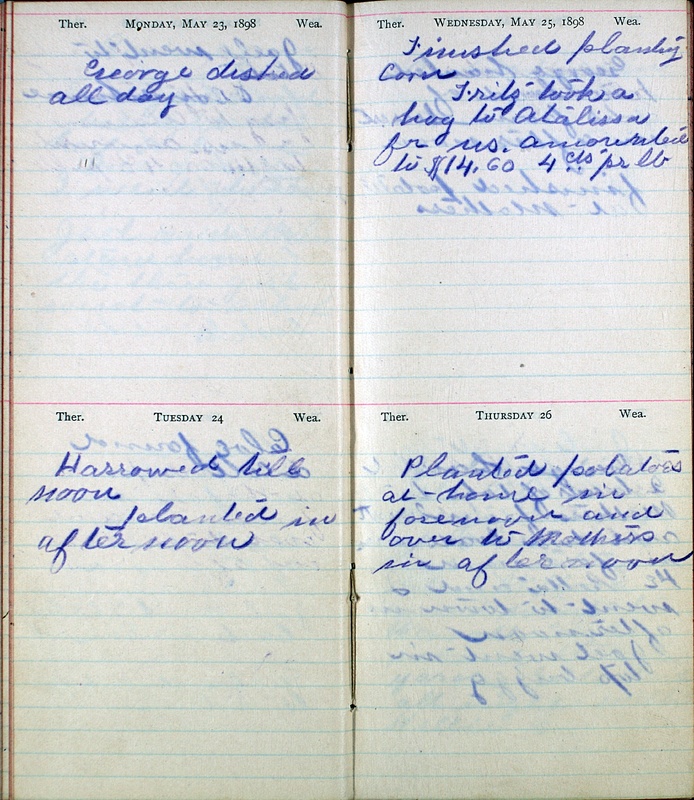 Ther. MONDAY, MAY 23, 1898 Wea.
George dished
all day
Ther. TUESDAY 24 Wea.
Harrowed till
noon
planted in
afternoon
Ther. WEDNESDAY, MAY 25, 1898 Wea.
Finished planting
corn
Fritz took a
hog to Atalissa
fr us. amounted
to $14.60 4 cts pr lb
Ther. THURSDAY 26 Wea.
Planted potatoes
at home in
forenoon and
over to Mothers
in afternoon